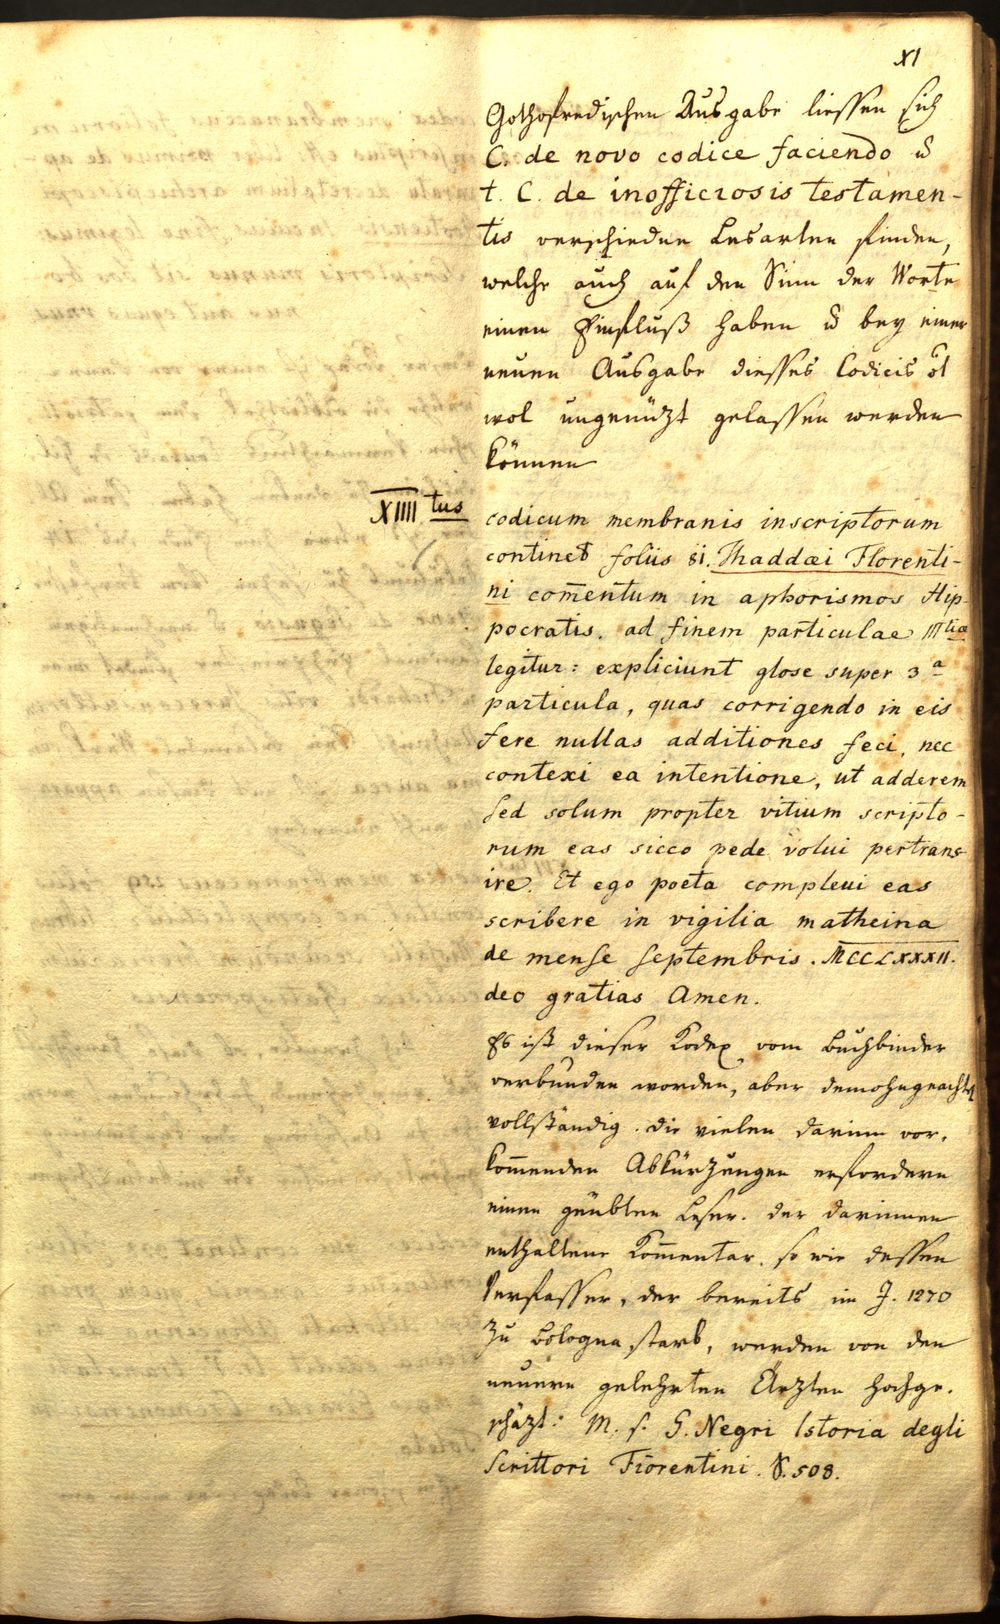 XI
Gothofredischen Ausgabe liessen sich
C. de novo codice faciendo u
t. C. de inofficiosis testamen-
tis verschiedene Lesarten finden,
welche auch auf den Sinn der Worte
einen Einfluß haben u bey einer
neuen Ausgabe dieses Codicis
wol ungenüzt gelassen werden
können
XIIII tus
codicum membranis inscriptorum
continet foliis 81. Thaddæi Florenti-
ni com̄entum in aphorismos Hip-
pocratis. ad finem particulae III tiæ
legitur: expliciunt glose super 3 a
particula, quas corrigendo in eis
fere nullas additiones feci, nec
contexi ea intentione, ut adderem
sed solum propter vitium scripto-
rum eas sicco pede volui pertrans
ire. Et ego poeta compleui eas
scribere in vigilia matheina
de mense septembris. MCCLXXXII.
deo gratias Amen.
Es ist dieser Kodex vom Buchbinder
verbunden worden, aber demohngeachtet
vollständig. die vielen darinn vor-
kom̄enden Abkürzungen erfordern
einen geübten Leser. der darinnen
enthaltene Kom̄entar. so wie dessen
Verfasser, der bereits im J. 1270
zu Bologna starb, werden von den
neuern gelehrten Ärzten hochge-
schäzt: M. s. G. Negri Istoria degli
Scrittori Fiorentini. S. 508.